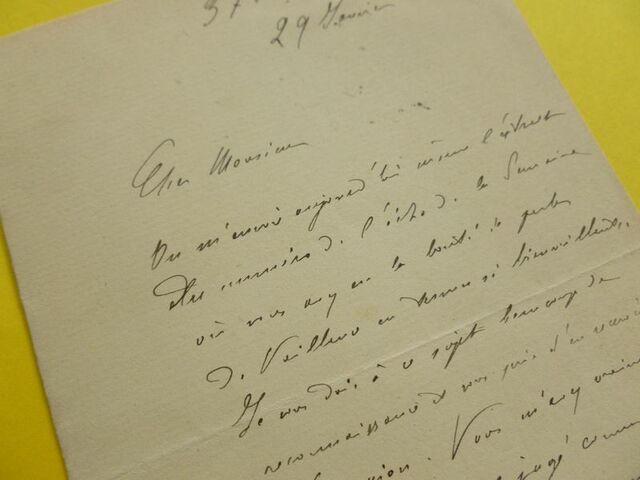 37
29 Janvier
Cher Monsieur
On m'envoie aujourd'hui même l'extrait
du numéro de l'écho de la Semaine
où vous avez eu la bonté de parler
de Veilleur en termes si bienveillants.
Je vous dois à ce sujet beaucoup de
reconnaissance et vous prie d'en recevoir
Vous m'avez vraiment
jugé comme